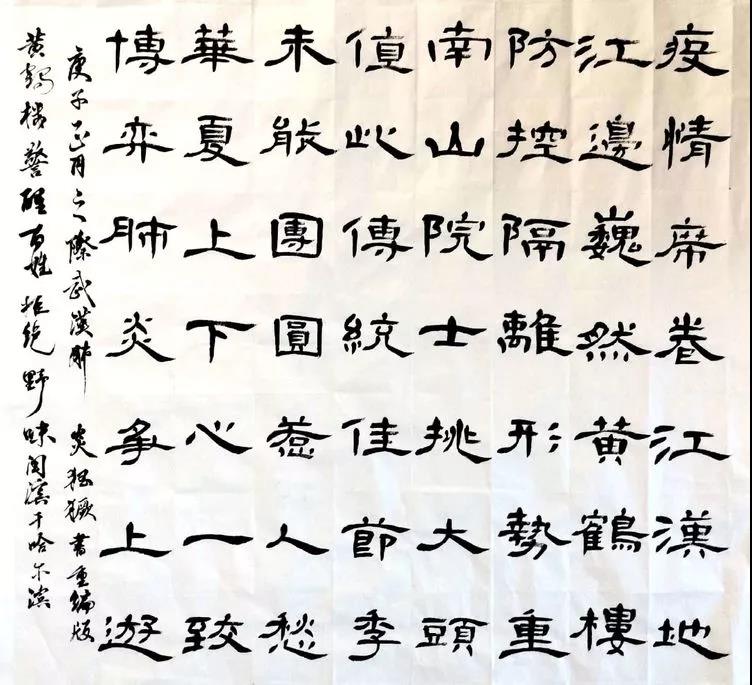 疫情席卷江漢地
江邊巍然黃鶴樓
防控隔離形勢重
南山院士挑大頭
值此傳統佳節季
未能團圓惹人愁
華夏上下心一致
博弈肺炎爭上游
庚子正月之際武漢肺炎猖獗書重編版
黃鶴樓警醒百姓拒绝野味闫濱于哈尔滨